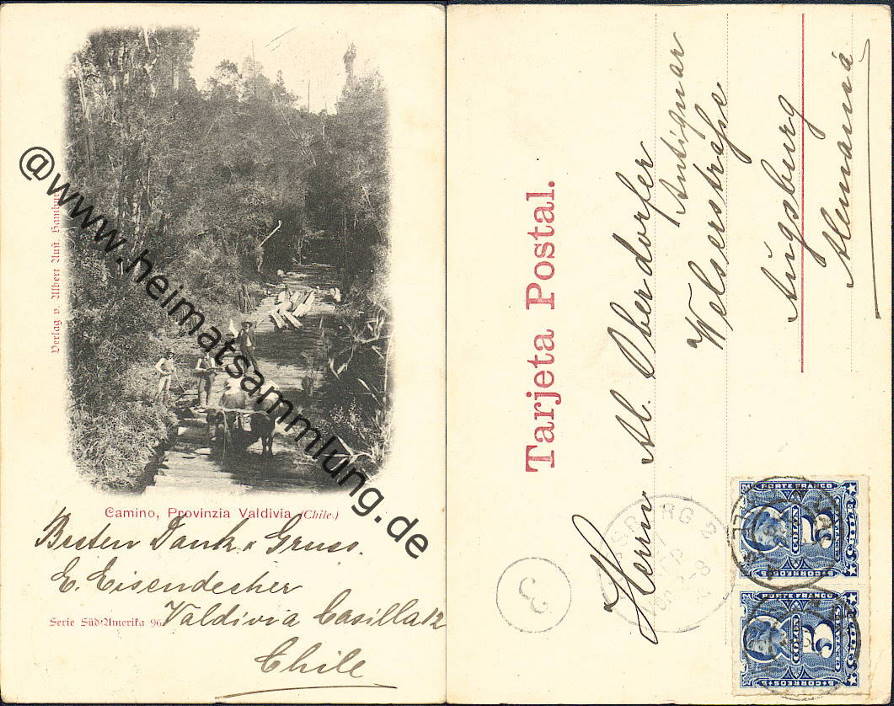 @www.heimatsammlung.de
Verlag v. Albert Aust. Hamburg
Camino, Provinzia Valdivia (Chile)
Besten Dank u Gruss.
E. Eisendecher
Serie Süd-Amerika 96
Valdivia Casilla 12
Chile
Tarjeta Postal.
Herrn Al. Oberdorfer
Antiquar
Welserstraße
Augsburg
Alemaniá
SBURG 2
3
PORTE FRANCO
COLON
5
CENTAVOS
CORREOS
PORTE FRANCO
COLON
5
CENTAVOS
CORREOS